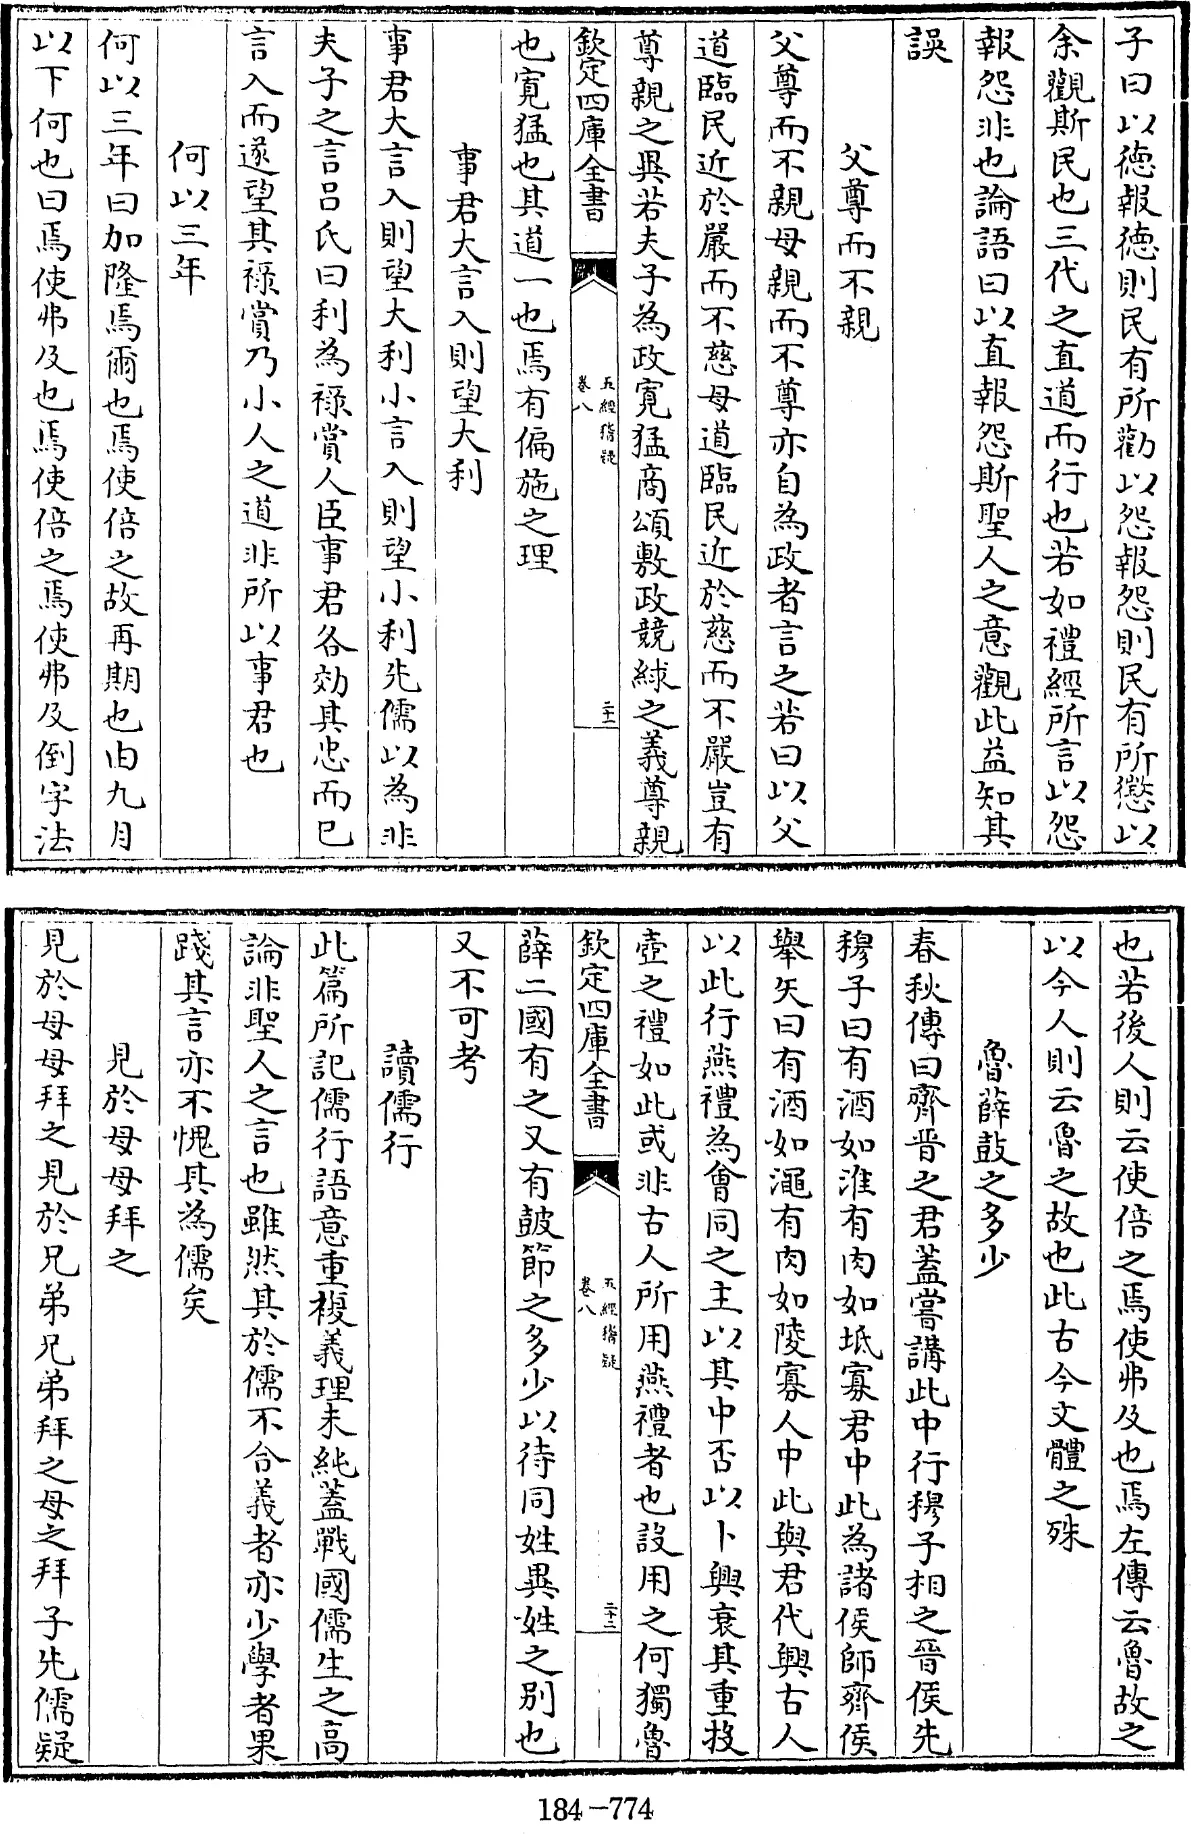 子曰以德報德則民有所勸以怨報怨則民有所懲以
余觀斯民也三代之直道而行也若如禮經所言以怨
報怨非也論語曰以直報怨斯聖人之意觀此益知其
誤
父尊而不親
父尊而不親母親而不尊亦自為政者言之若曰以父
道臨民近於嚴而不慈母道臨民近於慈而不嚴豈有
尊親之異若夫子為政寛猛商頌敷政競絿之義尊親
欽定四庫全書
五經稽疑
卷八
二十一
也寛猛也其道一也焉有偏施之理
事君大言入則望大利
事君大言入則望大利小言入則望小利先儒以為非
夫子之言呂氏曰利為祿賞人臣事君各効其忠而已
言入而遂望其祿賞乃小人之道非所以事君也
何以三年
何以三年曰加隆焉爾也焉使倍之故再期也由九月
以下何也曰焉使弗及也焉使倍之焉使弗及倒字法
也若後人則云使倍之焉使弗及也焉左傳云魯故之
以今人則云魯之故也此古今文體之殊
魯薛鼓之多少
春秋傳曰齊晉之君蓋嘗講此中行穆子相之晉侯先
穆子曰有酒如淮有肉如坻寡君中此為諸侯師齊侯
舉矢曰有酒如澠有肉如陵寡人中此與君代興古人
以此行燕禮為會同之主以其中否以卜興衰其重投
壺之禮如此或非古人所用燕禮者也設用之何獨魯
欽定四庫全書
五經稽疑
卷八
二十二
薛二國有之又有鼓節之多少以待同姓異姓之别也
又不可考
讀儒行
此篇所記儒行語意重複義理未純蓋戰國儒生之高
論非聖人之言也雖然其於儒不合義者亦少學者果
踐其言亦不愧其為儒矣
見於母母拜之
見於母母拜之見於兄弟兄弟拜之母之拜子先儒疑
184-774